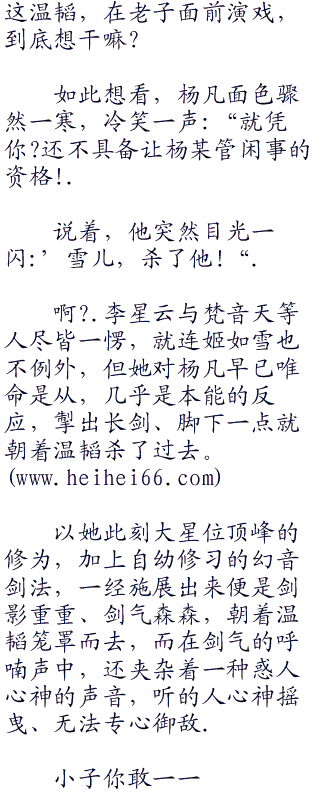 这温韬，在老子面前演戏，
到底想干嘛？
如此想看，杨凡面色骤
然一寒，冷笑一声：“就凭
你?还不具备让杨某管闲事的
资格!.
说着，他突然目光一
闪:’雪儿，杀了他！“.
啊?.李星云与梵音天等
人尽皆一愣，就连姬如雪也
不例外，但她对杨凡早已唯
命是从，几乎是本能的反
应，掣出长剑、脚下一点就
朝着温韬杀了过去。
(www.heihei66.com)
以她此刻大星位顶峰的
修为，加上自幼修习的幻音
剑法，一经施展出来便是剑
影重重、剑气森森，朝着温
韬笼罩而去，而在剑气的呼
喃声中，还夹杂着一种惑人
心神的声音，听的人心神摇
曳、无法专心御敌.
小子你敢一一